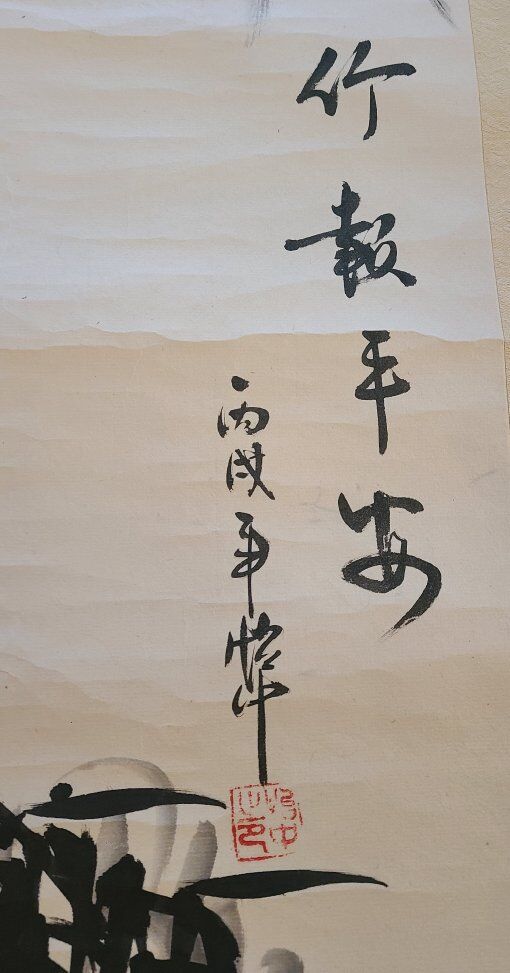 竹報平安
丙戌年